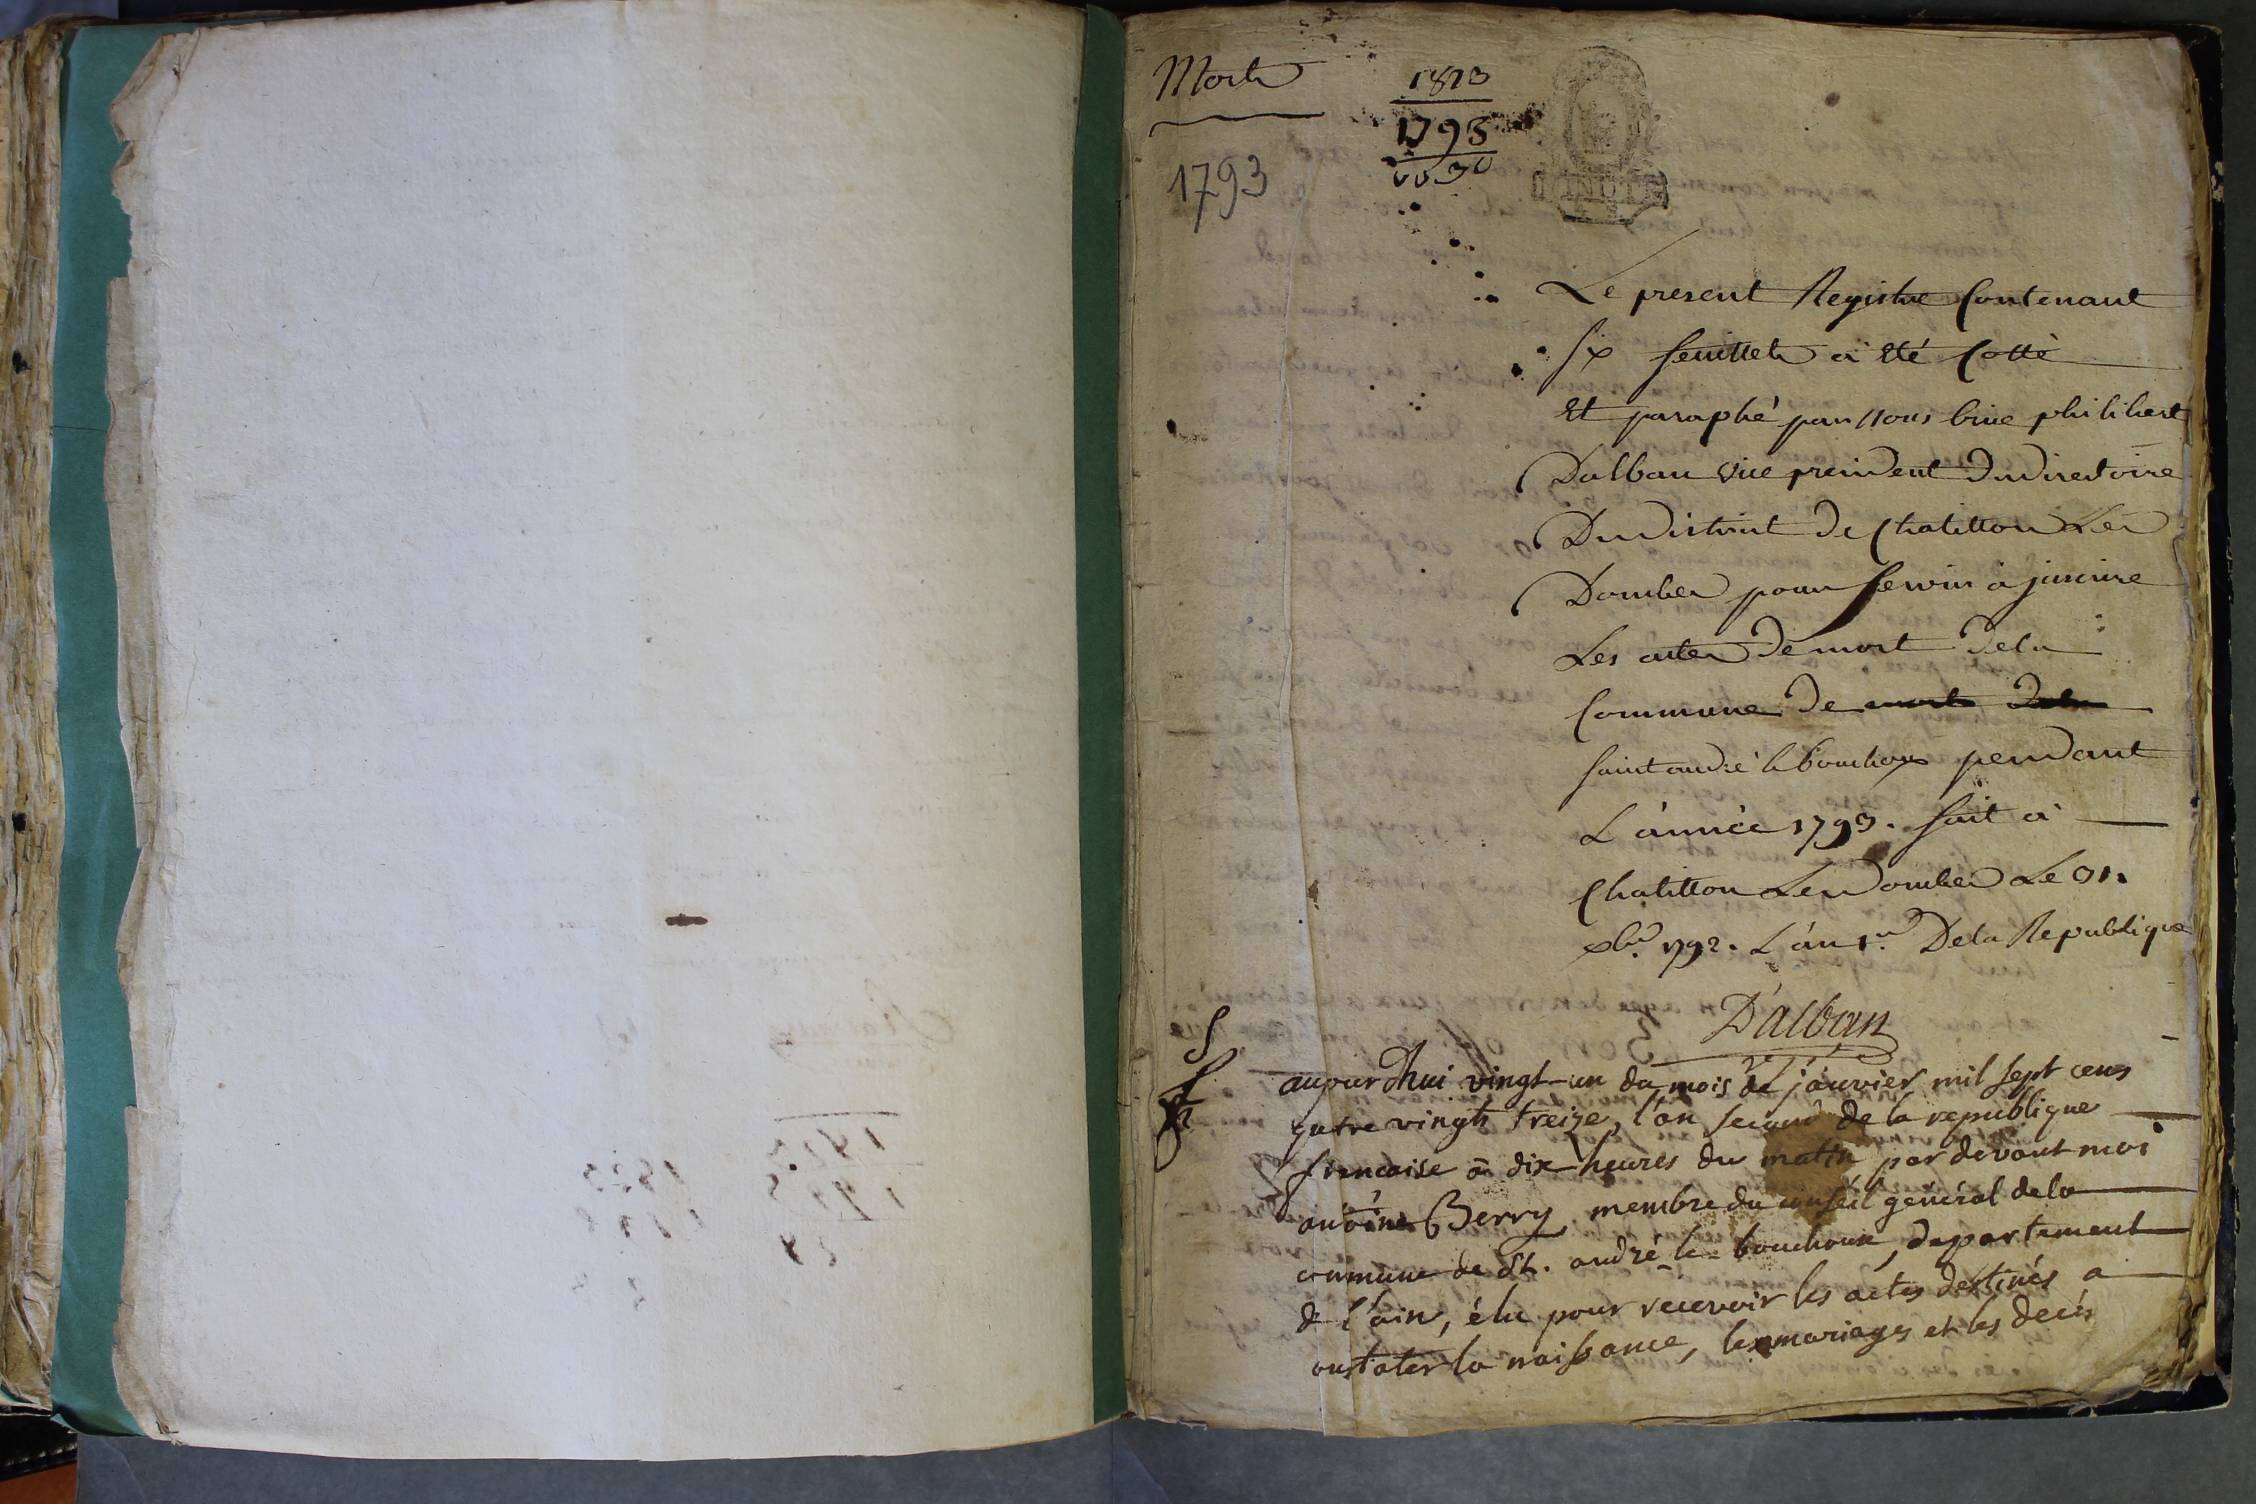 Morts
1793
1823
1793
0030
MINUTE
Le present Registre Contenant
six feuillets a Eté Cotté
Et paraphé par nous philibert
Dalban vice president Du directoire
Du district de Chatillon Les
Dombes pour servir à jnscrire
Les actes De mort De la
Commune De mort De la
saint andré le bouchoux pendant
L'année 1793. fait à
Chatillon Les Dombes Le 31.
xbre 1792. L'an 1er De la Republique
D'alban
aujourdhui vingt-un du mois de janvier mil sept cens
quatre vingts treize, l'an second de la republique
francaise à dix heures du matin par devant moi
antoine Berry membre du conseil général de la
commune de St. andré-le-bouchoux, departement
de l'ain, élu pour recevoir les actes destinés a
constater la naissance, les mariages et les decès